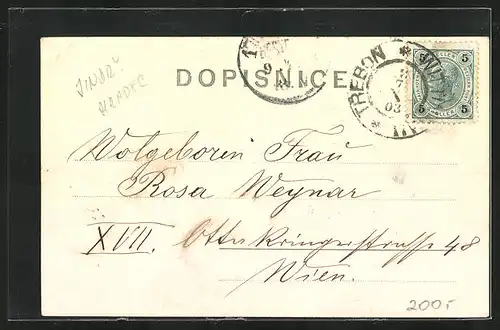 JINDŘ.
HRADEC
DOPISNICE
TŘEBOŇ
5 5
HELLER
Wolgeboren Frau
Rosa Weynar
XVII. Ottakringerstrasse 48
Wien.
200,-